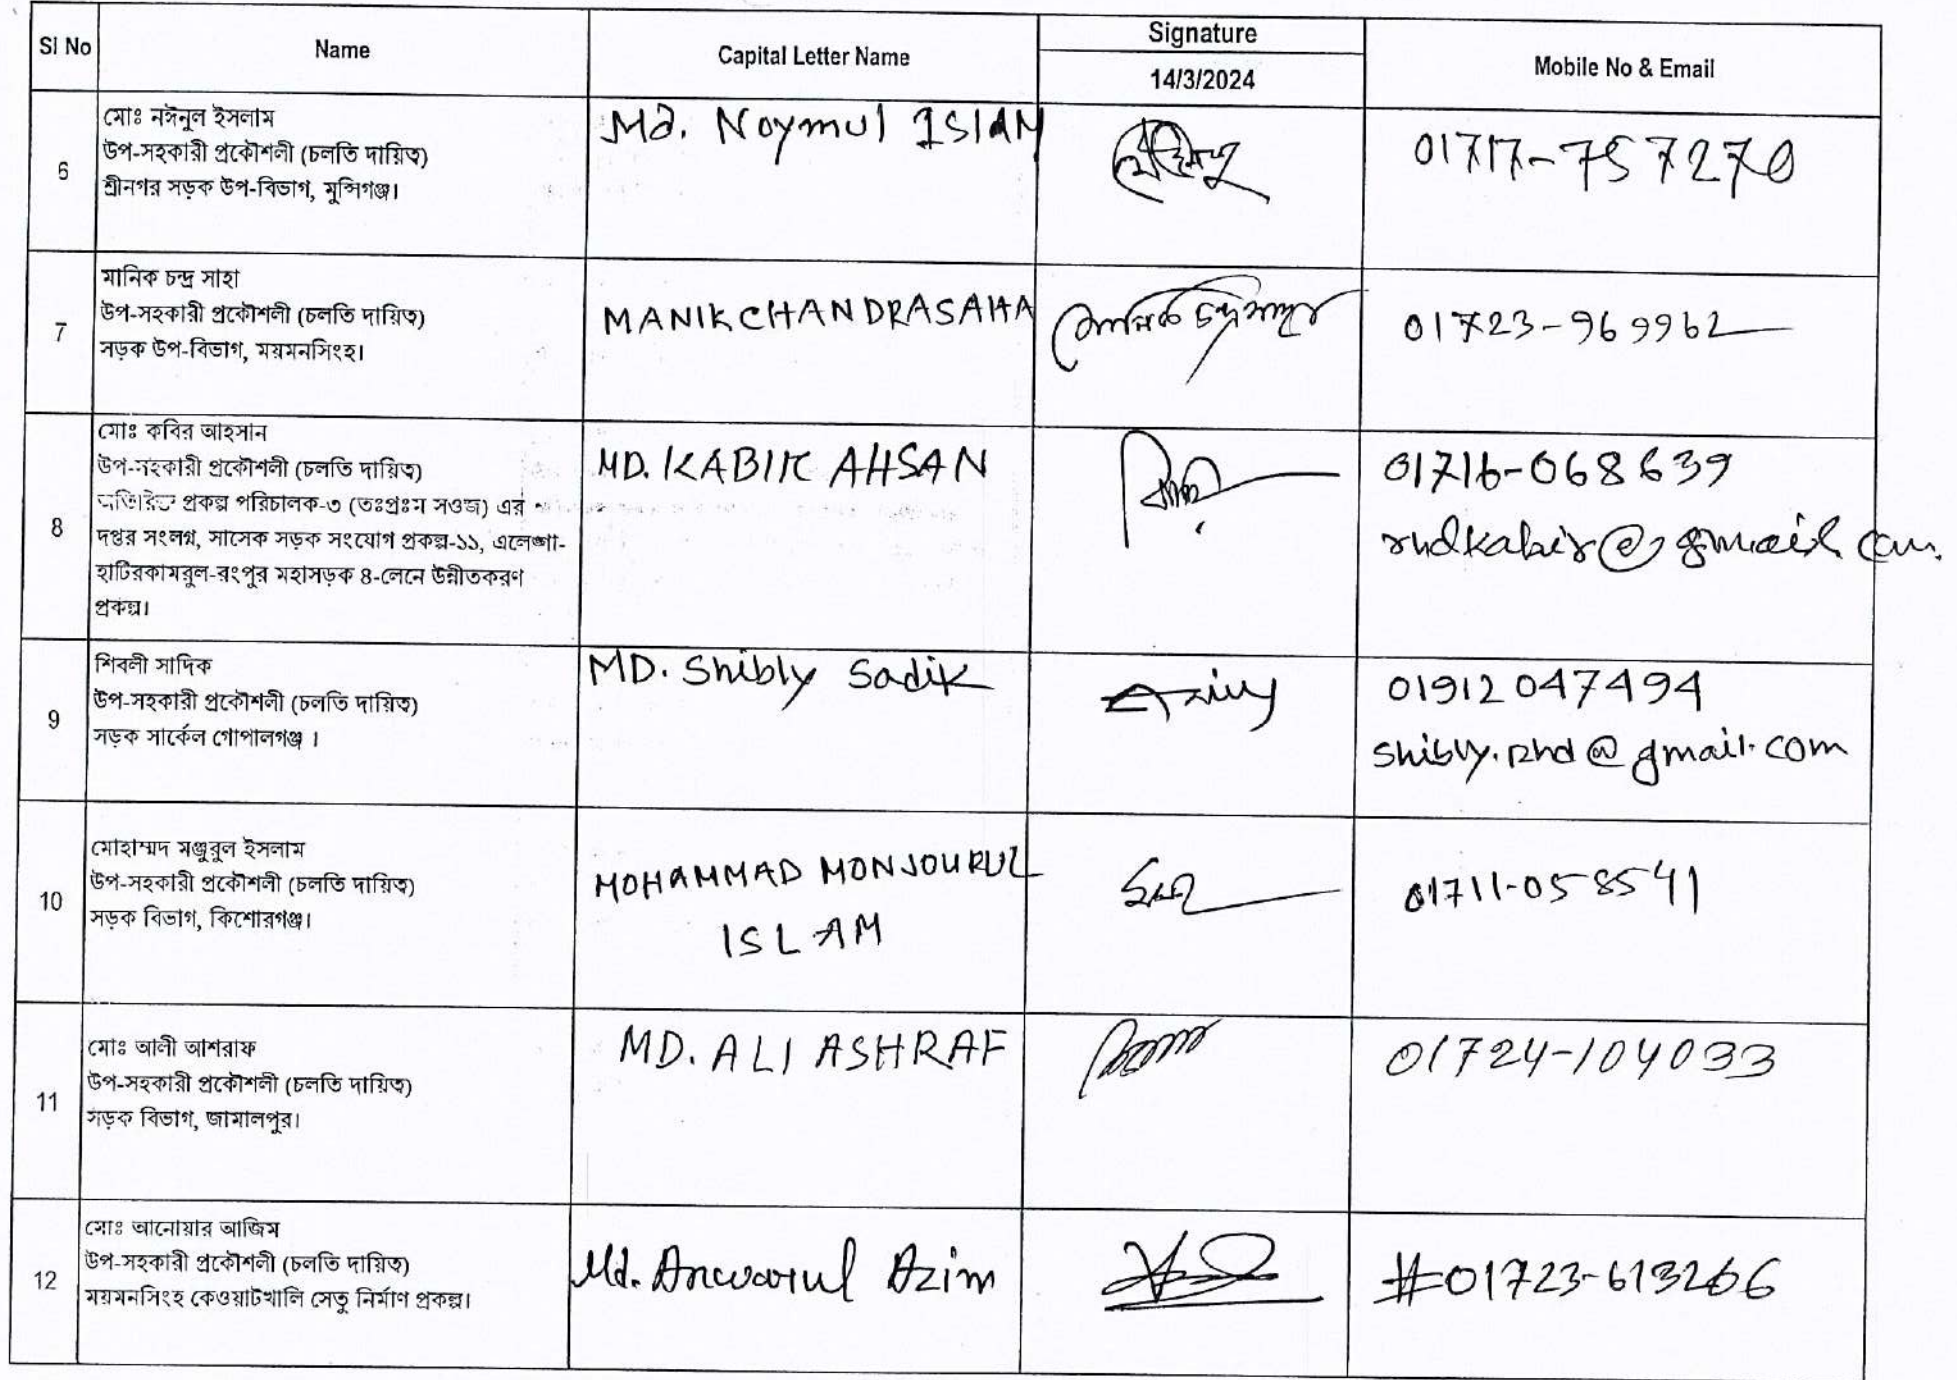 Sl No
Name
Capital Letter Name
Signature
14/3/2024
Mobile No & Email
6
মোঃ নঈনুল ইসলাম
উপ-সহকারী প্রকৌশলী (চলতি দায়িত্ব)
শ্রীনগর সড়ক উপ-বিভাগ, মুন্সিগঞ্জ।
Md. Noymul ISlAM
01717-757270
7
মানিক চন্দ্র সাহা
উপ-সহকারী প্রকৌশলী (চলতি দায়িত্ব)
সড়ক উপ-বিভাগ, ময়মনসিংহ।
MANIK CHANDRA SAHA
মানিক চন্দ্র সাহা
01723-969962
8
মোঃ কবির আহসান
উপ-সহকারী প্রকৌশলী (চলতি দায়িত্ব)
অতিরিক্ত প্রকল্প পরিচালক-৩ (তঃপ্রঃম সওজ) এর
দপ্তর সংলগ্ন, সাসেক সড়ক সংযোগ প্রকল্প-১১, এলেঙ্গা-
হাটিরকামরুল-রংপুর মহাসড়ক ৪-লেনে উন্নীতকরণ
প্রকল্প।
MD. KABIR AHSAN
01716-068639
rhdkabir@gmail.com.
9
শিবলী সাদিক
উপ-সহকারী প্রকৌশলী (চলতি দায়িত্ব)
সড়ক সার্কেল গোপালগঞ্জ ।
MD. Shibly Sadik
01912047494
shibly.rhd@gmail.com
10
মোহাম্মদ মঞ্জুরুল ইসলাম
উপ-সহকারী প্রকৌশলী (চলতি দায়িত্ব)
সড়ক বিভাগ, কিশোরগঞ্জ।
MOHAMMAD MONJOURUL
ISLAM
01711-058541
11
মোঃ আলী আশরাফ
উপ-সহকারী প্রকৌশলী (চলতি দায়িত্ব)
সড়ক বিভাগ, জামালপুর।
MD. ALI ASHRAF
01724-104033
12
মোঃ আনোয়ার আজিম
উপ-সহকারী প্রকৌশলী (চলতি দায়িত্ব)
ময়মনসিংহ কেওয়াটখালি সেতু নির্মাণ প্রকল্প।
Md. Anwarul Azim
#01723-613266